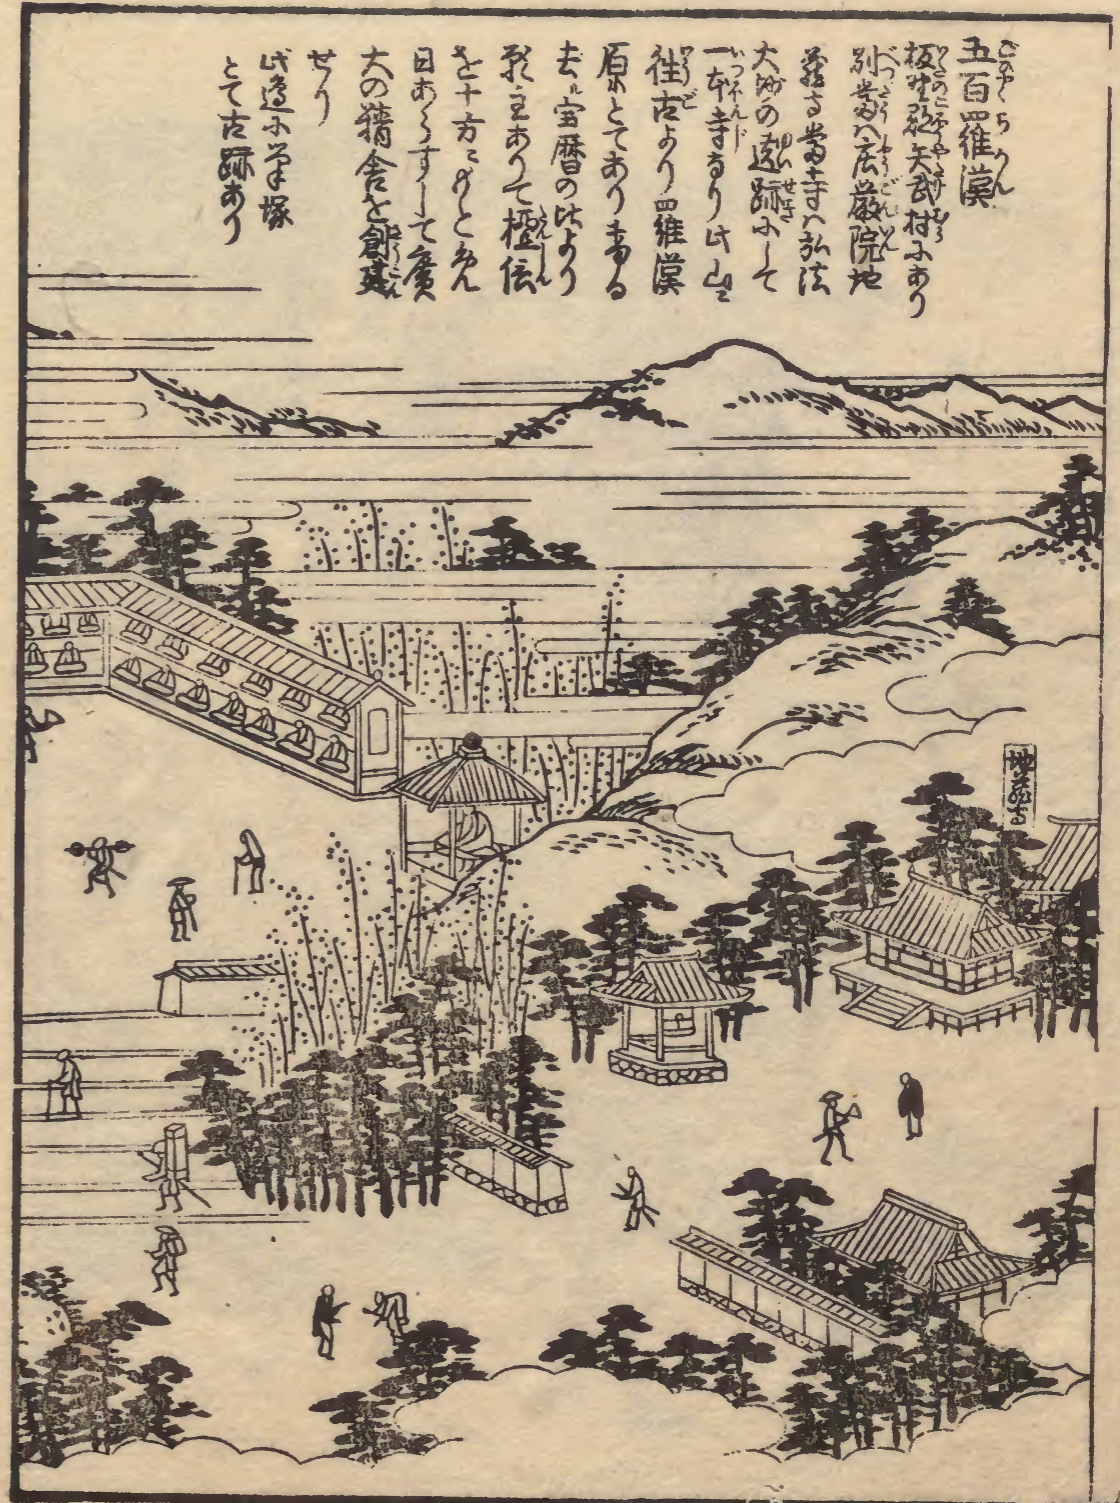 五百羅漢
板野郡矢武村にあり
別當ハ荘嚴院地
蔵寺當寺ハ弘法
大師の遺跡にして
一本寺なり此山に
往古より羅漢
原とてありける
去ル宝暦の比より
願主ありて檀信
を十方にもとめ
日あらずして廣
大の精舎を創建
せり
此邊に塚
とて古跡あり
地蔵寺